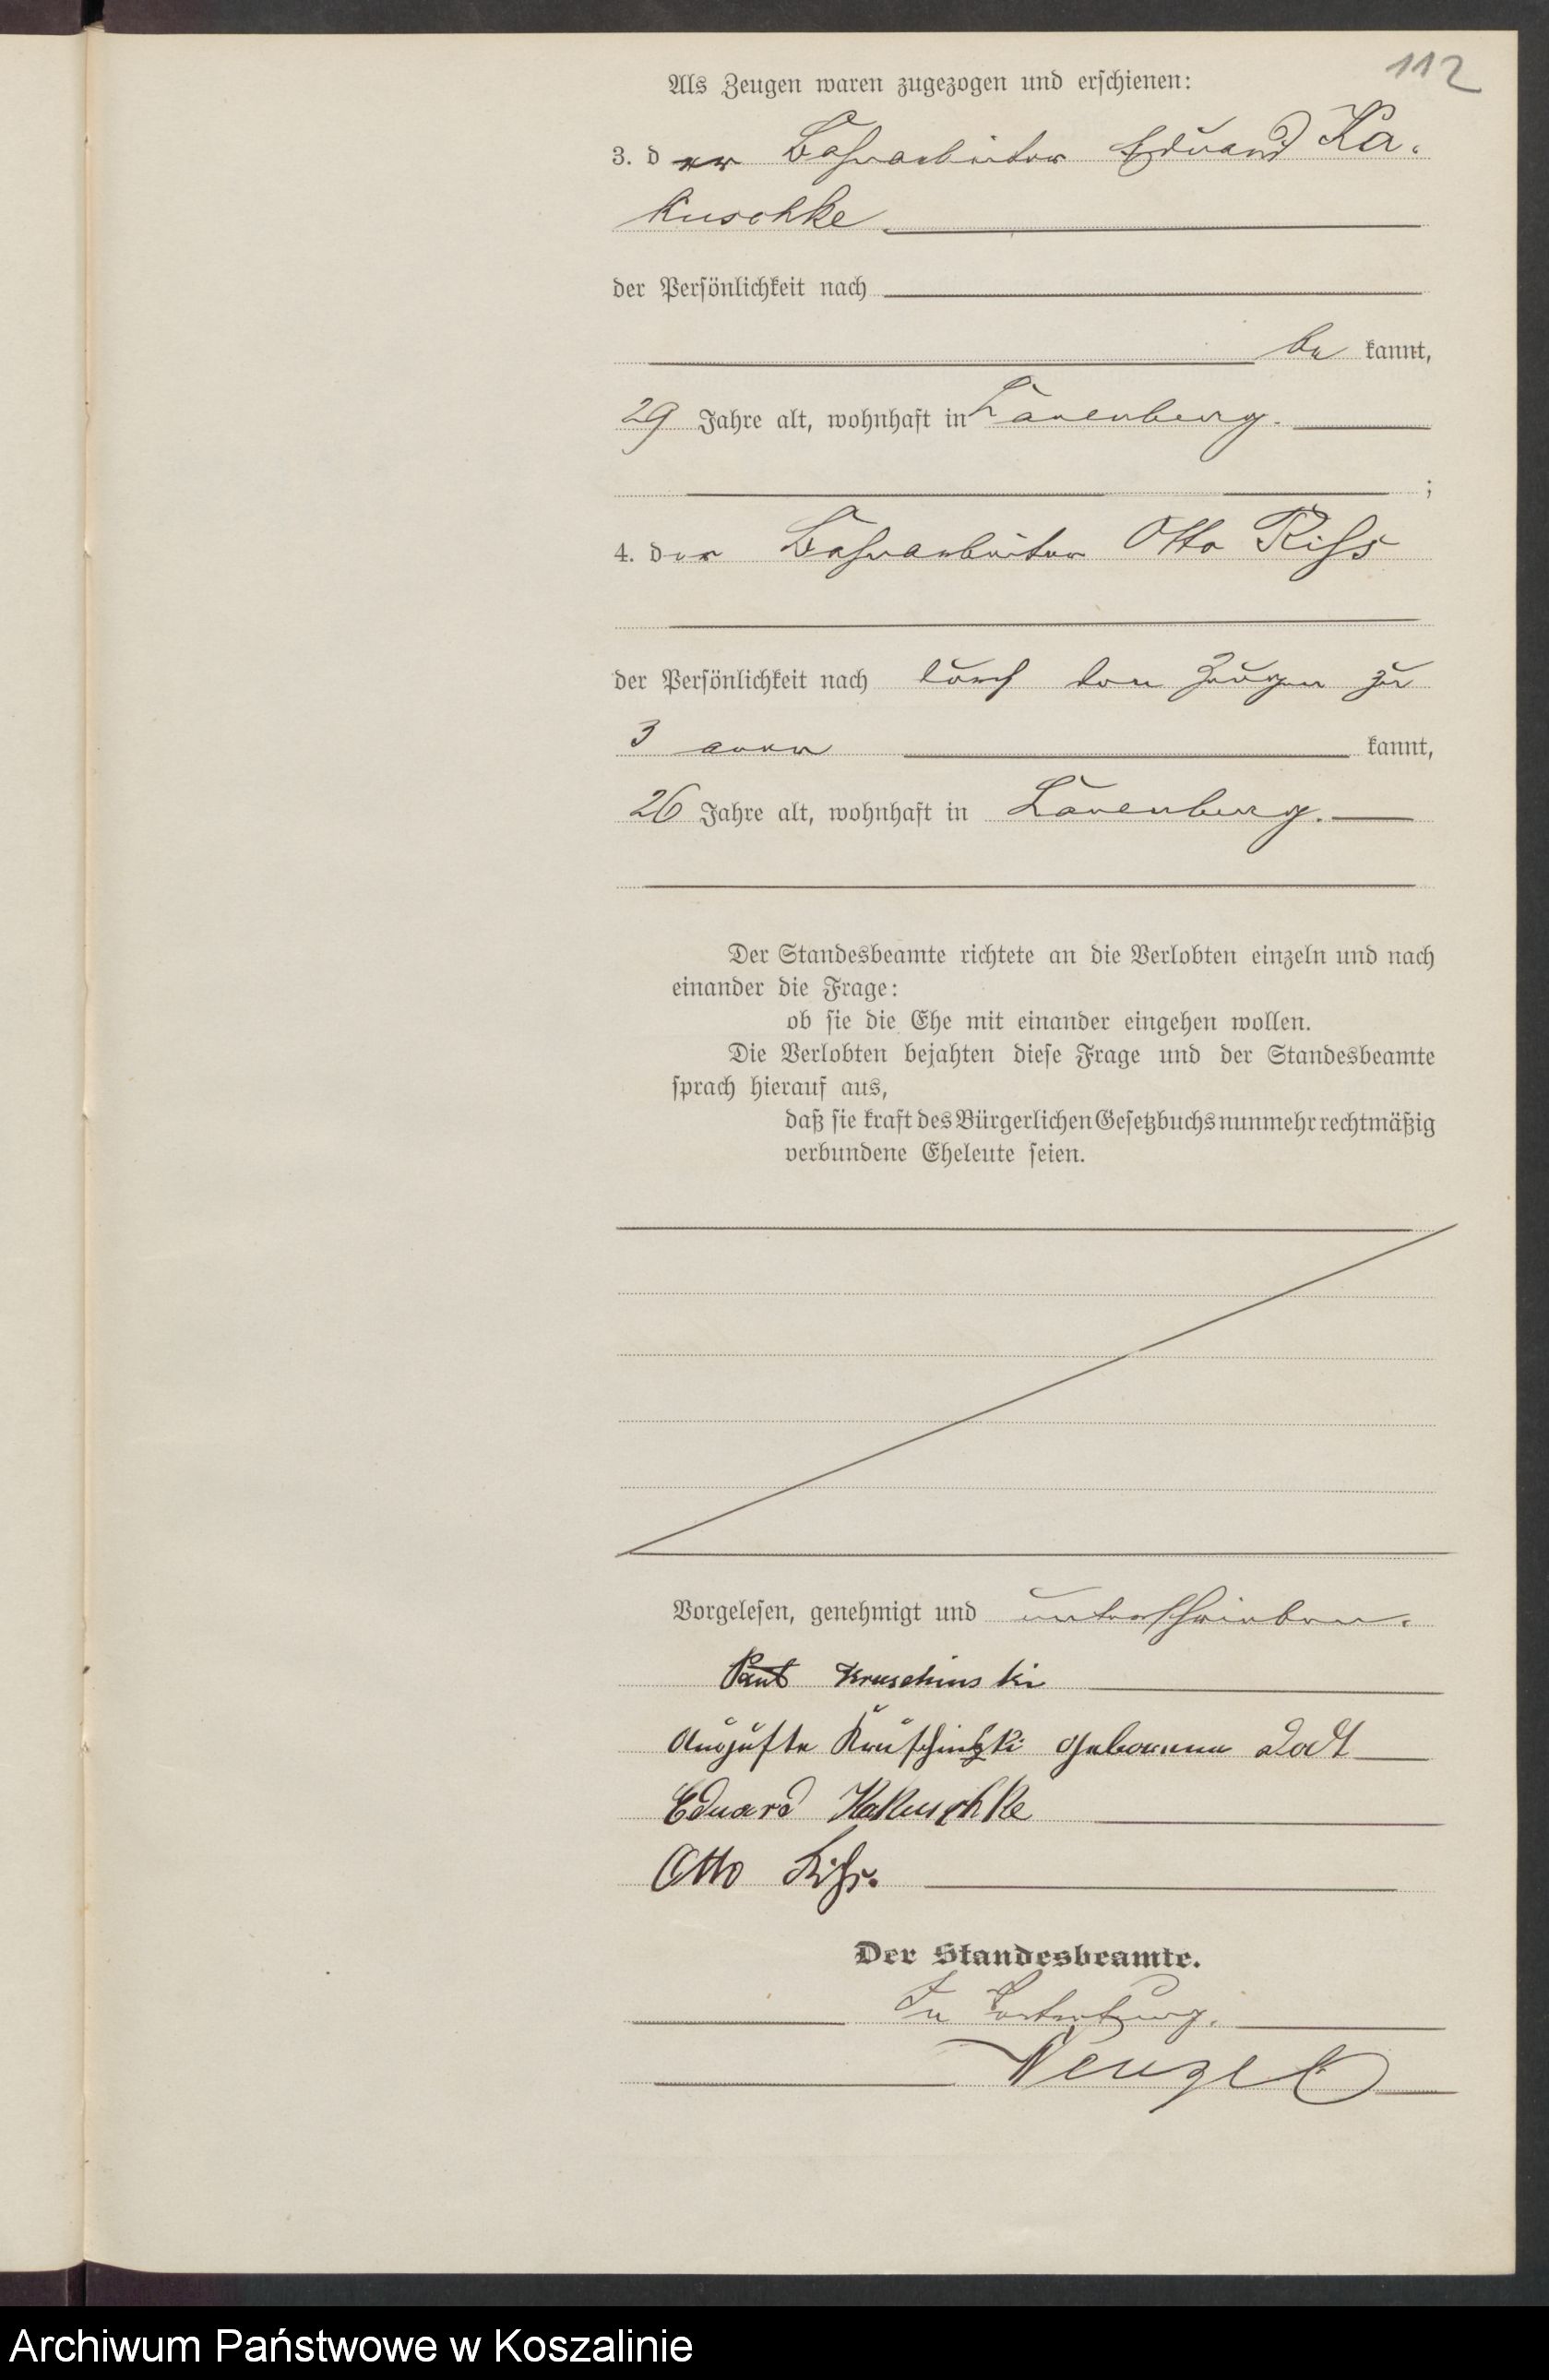 112
Als Zeugen waren zugezogen und erschienen:
3. der Bahnarbeiter Eduard Ka-
kuschke
der Persönlichkeit nach
be kannt,
29 Jahre alt, wohnhaft in Lauenburg.
;
4. der Bahnarbeiter Otto Riß
der Persönlichkeit nach durch den Zeugen zu
3 aner kannt,
26 Jahre alt, wohnhaft in Lauenburg.
Der Standesbeamte richtete an die Verlobten einzeln und nach
einander die Frage:
ob sie die Ehe mit einander eingehen wollen.
Die Verlobten bejahten diese Frage und der Standesbeamte
sprach hierauf aus,
daß sie kraft des Bürgerlichen Gesetzbuchs nunmehr rechtmäßig
verbundene Eheleute seien.
Vorgelesen, genehmigt und unterschrieben.
Paul Kruschinski
Auguste Kruschinski geborene
Eduard Kakuschke
Otto Riß.
Der Standesbeamte.
In Vertretung.
Wenzel
Archiwum Państwowe w Koszalinie